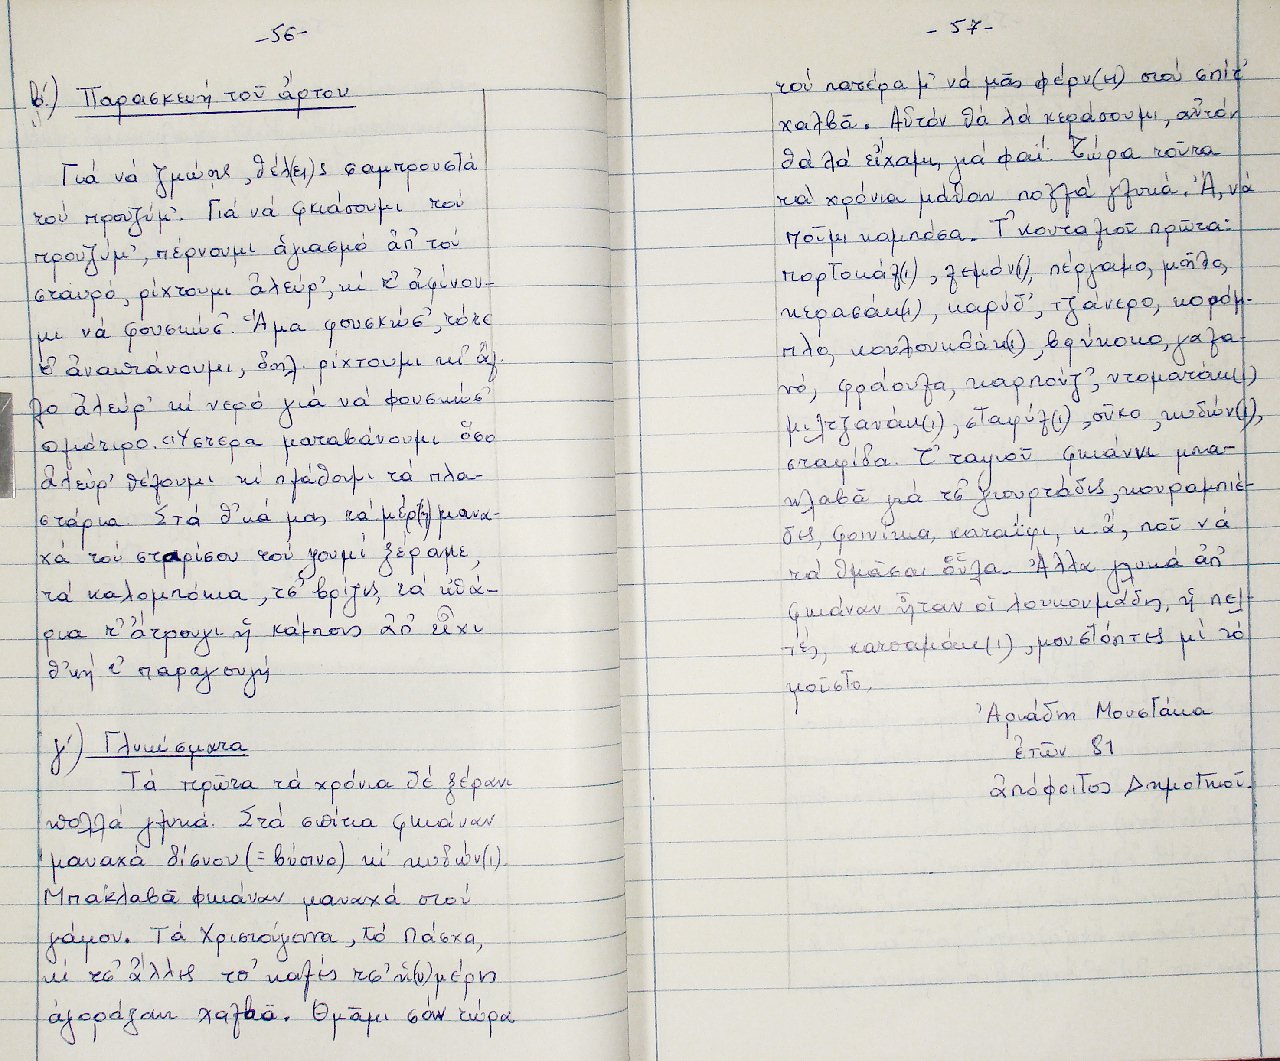 -56-
β΄.) Παρασκευή τοῦ ἄρτου
Γιά νά ζμώης, θέλ(ει)ς σαμπρουστά
τού προυζύμ'. Γιά νά φκιάσουμι τού
προυζύμ', πέρνουμι ἁγιασμό ἀπ' τού
σταυρό, ρίχτουμι ἀλεύρ', κί τ' ἀφίνου-
μι νά φουσκώσ'. Ἅμα φουσκώσ', τότε
τ' ἀναπιάνουμι, δηλ. ρίχτουμι κί ἄλ-
λο ἀλεύρ' κί νερό γιά νά φουσκώσ'
Ὕστερα ματαβάνουμι ὅσο
ἀλεύρ' θέλουμι κί πλάθουμι τά πλα-
στάρια. Στά θ'κά μας τά μέρ(η) μανα-
χά τού σταρίσου τού ψουμί ξέραμε,
τά καλαμπόκια, τσ' βρίζις, τά κ'θά-
ρια τ' ἄτρουγι ἤ κάμποις ἀπ' εἶχι
θ'κή τ' παραγουγή
γ΄) Γλυκίσματα
Τά πρῶτα τά χρόνια δέ ξέραν
πολλά γλυκά. Στά σπίτια φκιάναν
μαναχά βίσνου (=βύσινο) κί κυδών(ι).
Μπακλαβᾶ φκιάναν μαναχά στού
γάμου. Τά Χριστούγεννα, τό Πάσχα,
κί τσ' ἄλλις τσ' καλές τσ' ἡ(μ)μέρις
ἀγοράζαν χαλβᾶ. Θμᾶμι σάν τώρα
-57-
τού πατέρα μ' νά μᾶς φέρν(ει) στού σπίτ'
χαλβᾶ. Αὐτόν θά λά κεράσουμι, αὐτόν
θά λά εἴχαμι γιά φαΐ. Τώρα τοῦτα
τά χρόνια μάθαν πολλά γλυκά. Ἄ, νά
ποῦμι καμπόσα. Τ' κουταλιοῦ πρῶτα:
πορτοκάλ(ι), λεμόν(ι), πέργαμο, μῆλο,
κερασάκ(ι), καρύδ', τζάνερο, κορόμ-
πλο, κουλουκθάκ(ι), βρύκοκο, γαλα-
νό, φράουλα, καρπούζ', ντοματάκ(ι)
μιλτζανάκ(ι), σταφύλ(ι), σῦκο, κυδών(ι),
σταφίδα. Τ' ταψιοῦ φκιάννι μπα-
κλαβᾶ γιά τσ' γιουρτάδις, κουραμπιέ-
δις, φοινίκια, καταΐφι, κ.ἄ, ποῦ νά
τά θμᾶσαι οὗλα. Ἄλλα γλυκά ἀπ'
φκιάναν ἦταν οἱ λουκουμάδις, ἡ πελ-
τές, κατσαμάκ(ι), μουστόπτες μί τό
μοῦστο.
Ἀριάδη Μουστάκα
ἐτῶν 81
ἀπόφοιτος Δημοτικοῦ.